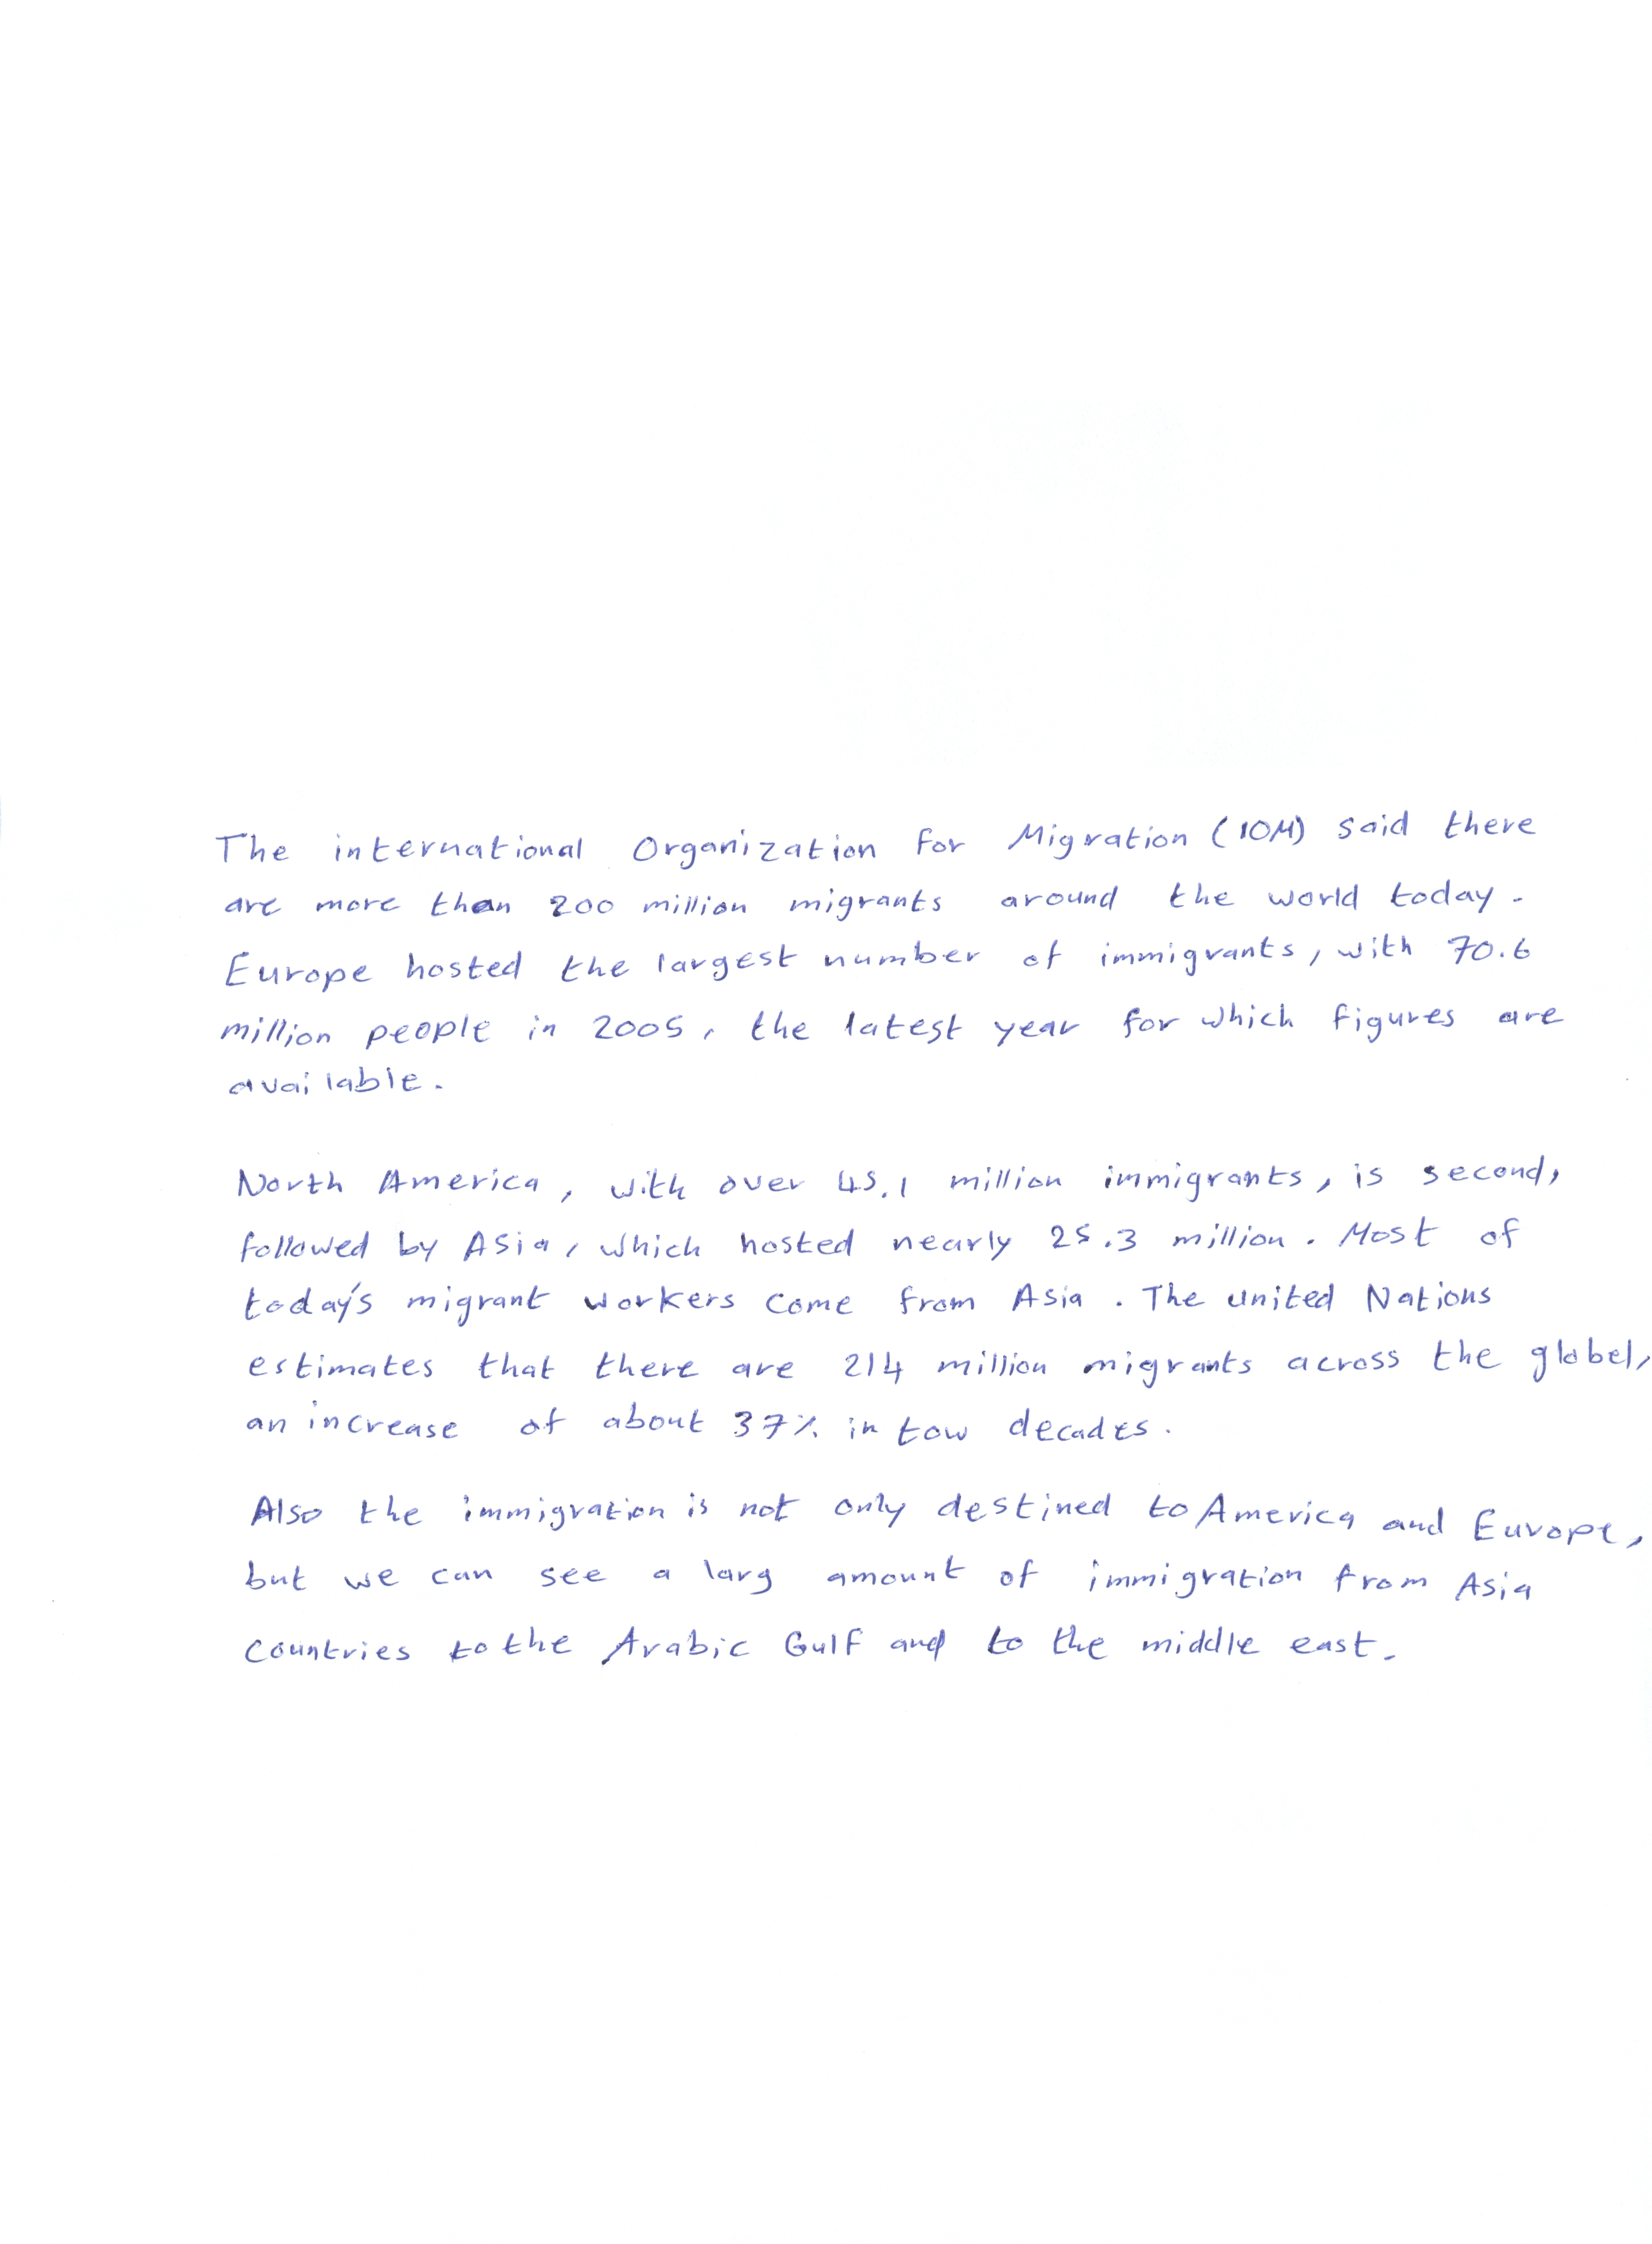 The international Organization for Migration (IOM) said there
are more than 200 million migrants around the world today.
Europe hosted the largest number of immigrants, with 70.6
million people in 2005, the latest year for which figures are
available.
North America, with over 45.1 million immigrants, is second,
followed by Asia, which hosted nearly 25.3 million. Most of
today's migrant workers come from Asia. The united Nations
estimates that there are 214 million migrants across the globel,
an increase of about 37% in tow decades.
Also the immigration is not only destined to America and Europe,
but we can see a larg amount of immigration from Asia
Countries to the Arabic Gulf and to the middle east.